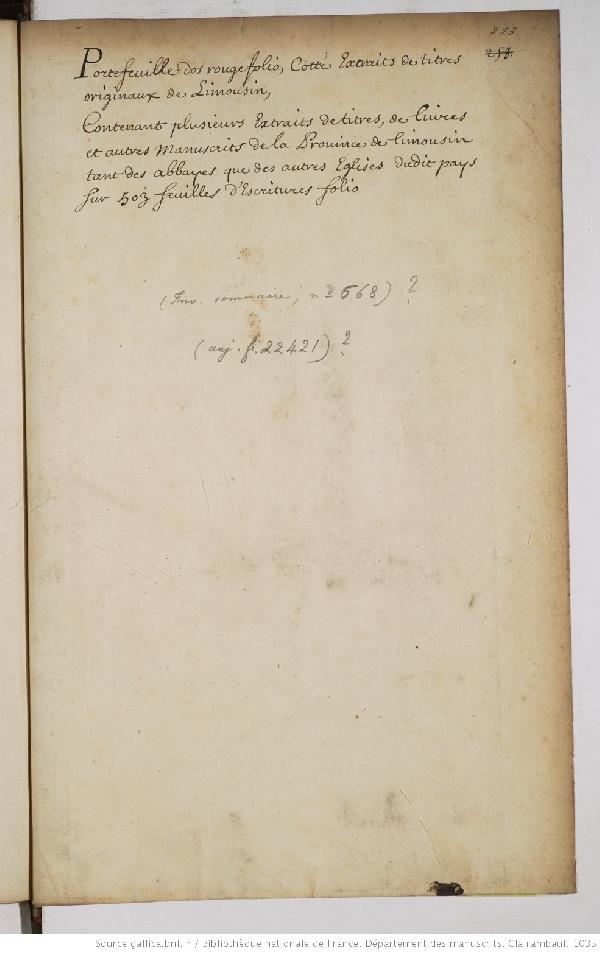 253
254
Portefeuille dos rouge folio, Cotté Extraits de titres
originaux de Limousin,
Contenant plusieurs Extraits de titres, de livres
et autres Manuscrits de la Province de Limousin
tant des abbayes que des autres Eglises dudit pays
sur 503 feuilles d'Escritures folio
(Inv. sommaire, nº 568) ?
(auj. fr. 22421) ?
Source gallica.bnf.fr / Bibliothèque nationale de France. Département des manuscrits. Clairambault 1035